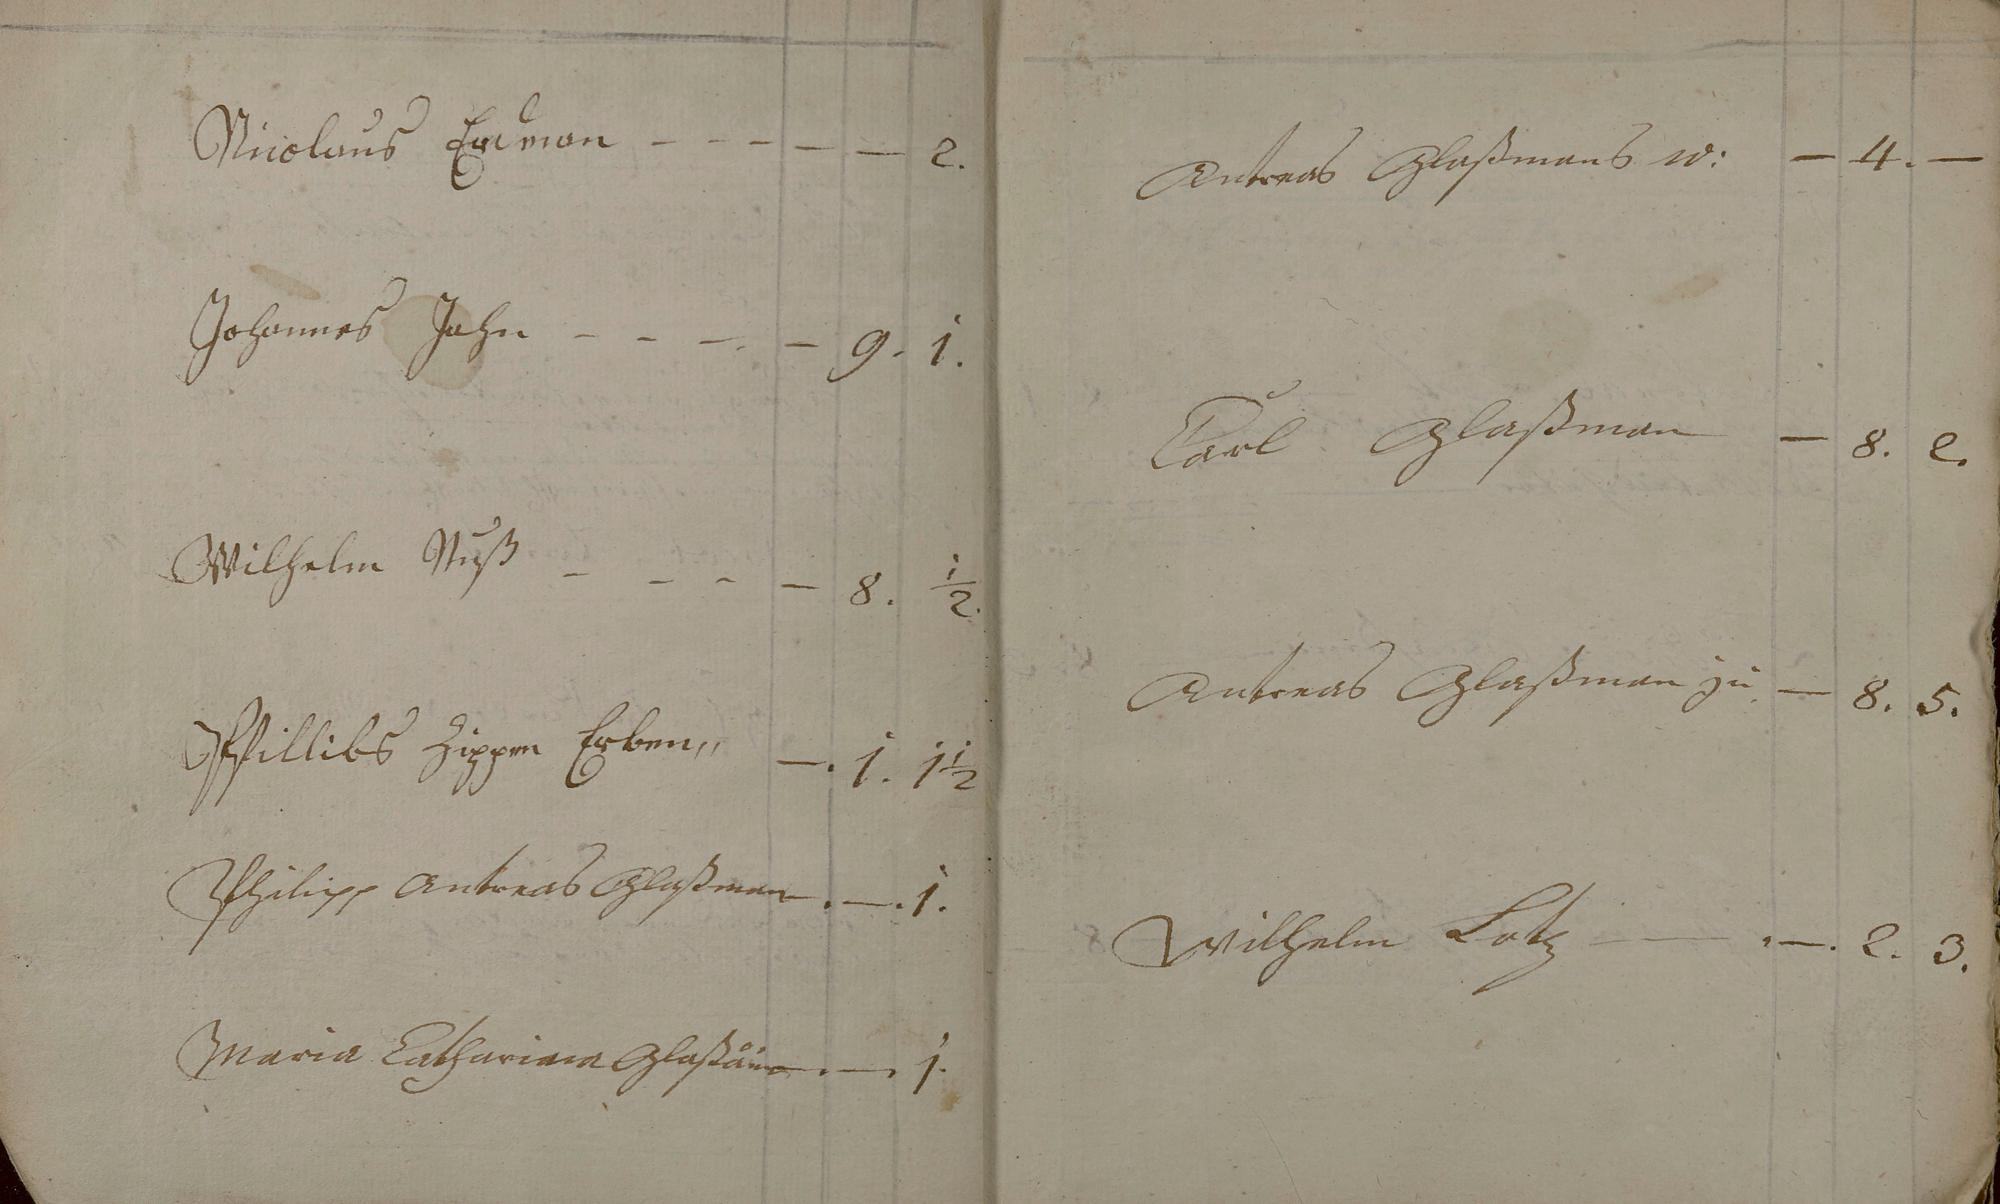 Nicolaus Erdman - - - - — 2.
Johannes Jahn - - - . — 9. 1.
Wilhelm Nuß - - - — 8. 1/2.
Phillibs Zippen Erben,, —. 1. 1 1/2
Philipp Antreas Glaßman . —. 1.
Maria Catharina . —. 1.
Antreas Glaßmans w: — 4. —
Carl Glaßman — 8. 2.
Antreas Glaßman ju — 8. 5.
Wilhelm Lotz — . —. 2. 3.